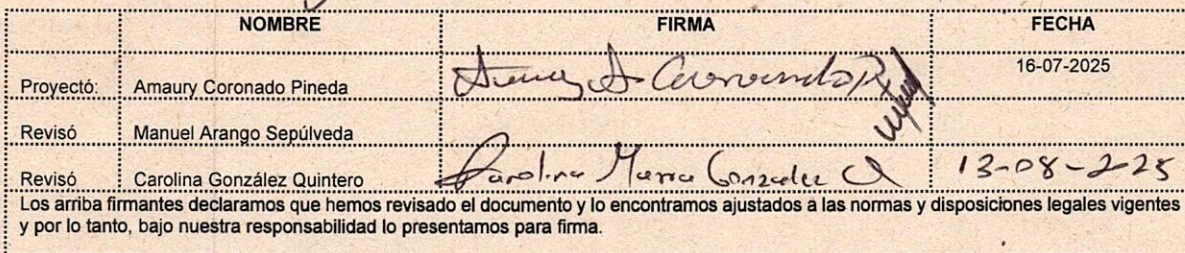 NOMBRE FIRMA FECHA
Proyectó: Amaury Coronado Pineda Amaury A Coronado P. 16-07-2025
Revisó Manuel Arango Sepúlveda
Revisó Carolina González Quintero Carolina María González Q 13-08-2025
Los arriba firmantes declaramos que hemos revisado el documento y lo encontramos ajustados a las normas y disposiciones legales vigentes
y por lo tanto, bajo nuestra responsabilidad lo presentamos para firma.